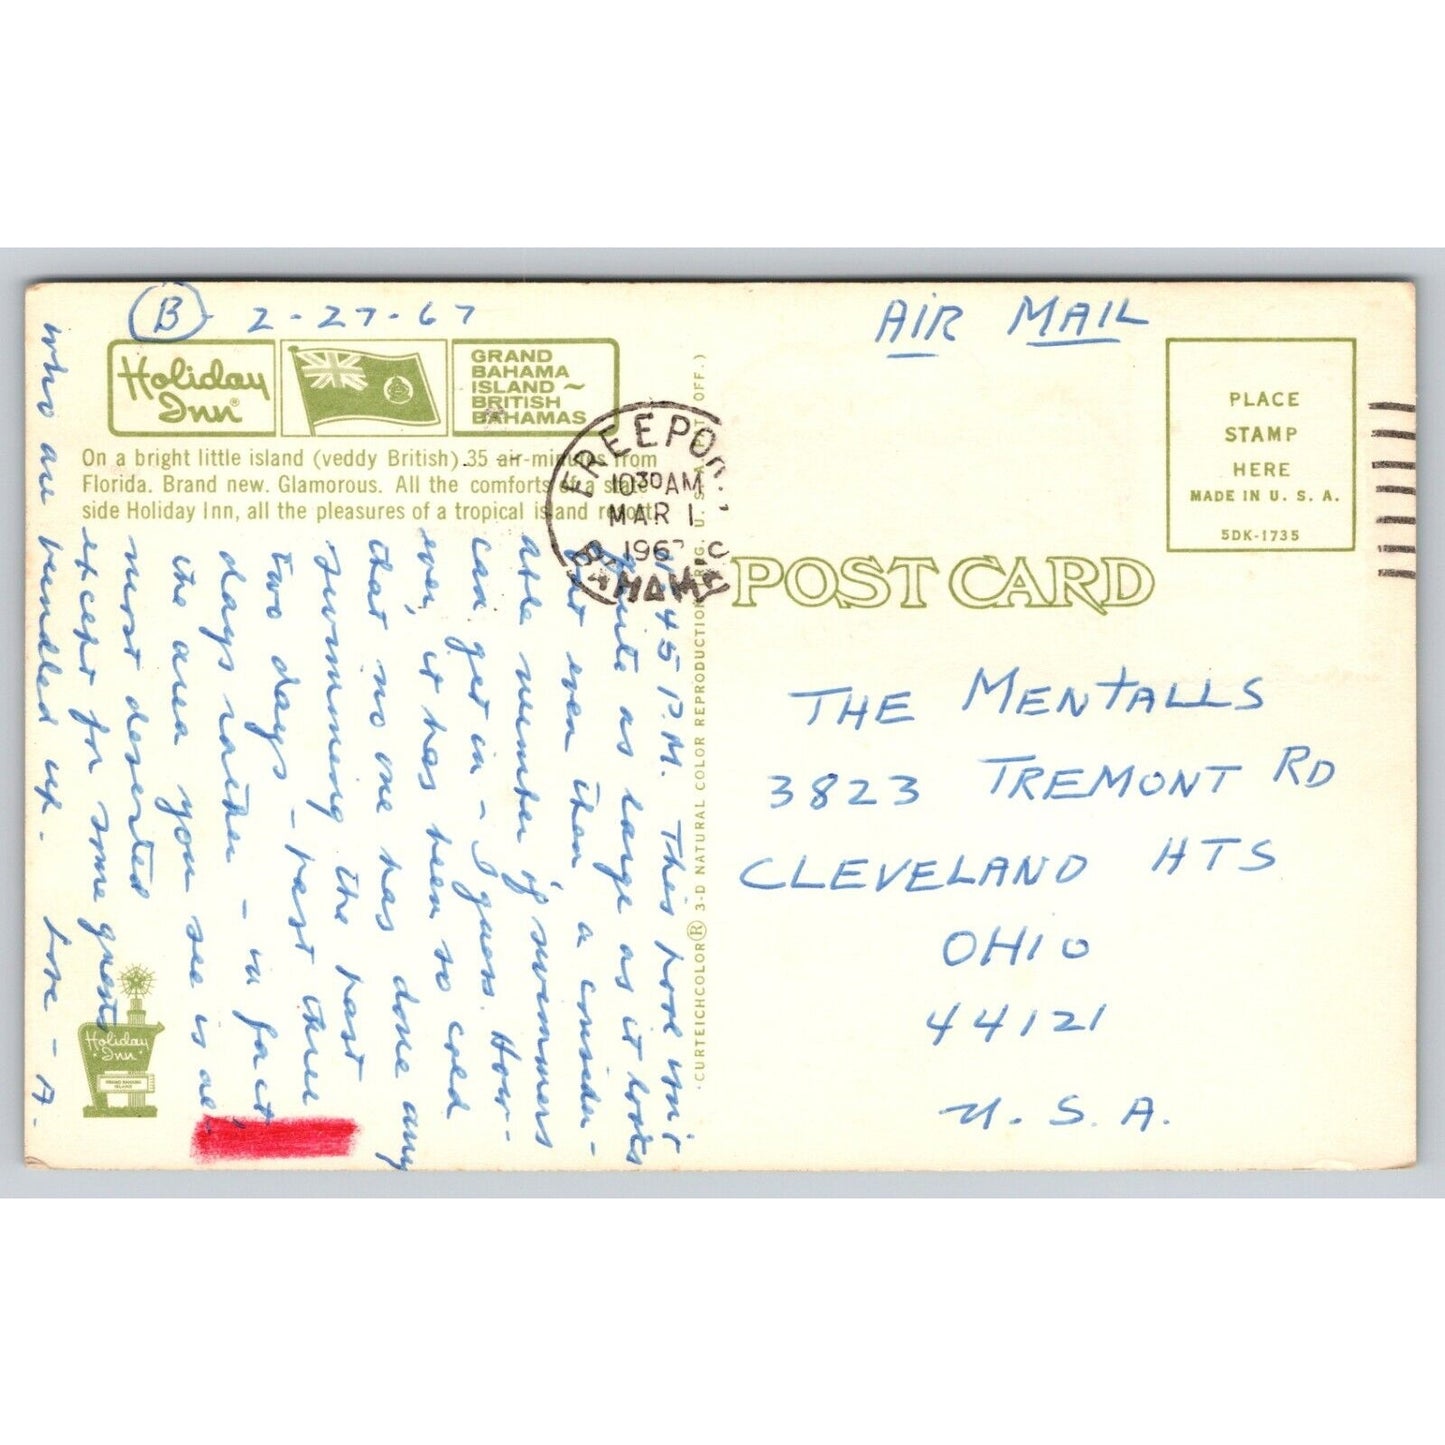 (B) 2-27-67
AIR MAIL
Holiday Inn®
GRAND
BAHAMA
ISLAND ~
BRITISH
BAHAMAS
On a bright little island (veddy British) 35 air-minutes from
Florida. Brand new. Glamorous. All the comforts of a state-
side Holiday Inn, all the pleasures of a tropical island resort.
FREEPO
10 30 AM
MAR 1
1967
BAHAMAS
PLACE
STAMP
HERE
MADE IN U. S. A.
5DK-1735
POST CARD
CURTEICHCOLOR® 3-D NATURAL COLOR REPRODUCTION REG. U. S. A. PAT OFF.)
45 P.M. This pool isn't
quite as large as it looks
but even then a consider-
able number of swimmers
can get in - I guess. How-
ever, it has been so cold
that no one has done any
swimming the past
two days - past three
days rather - in fact
the area you see is al-
most deserted
except for some guests
who are bundled up. Love - A.
THE MENTALLS
3823 TREMONT RD
CLEVELAND HTS
OHIO
44121
U. S. A.
Holiday
Inn
GRAND BAHAMA
ISLAND